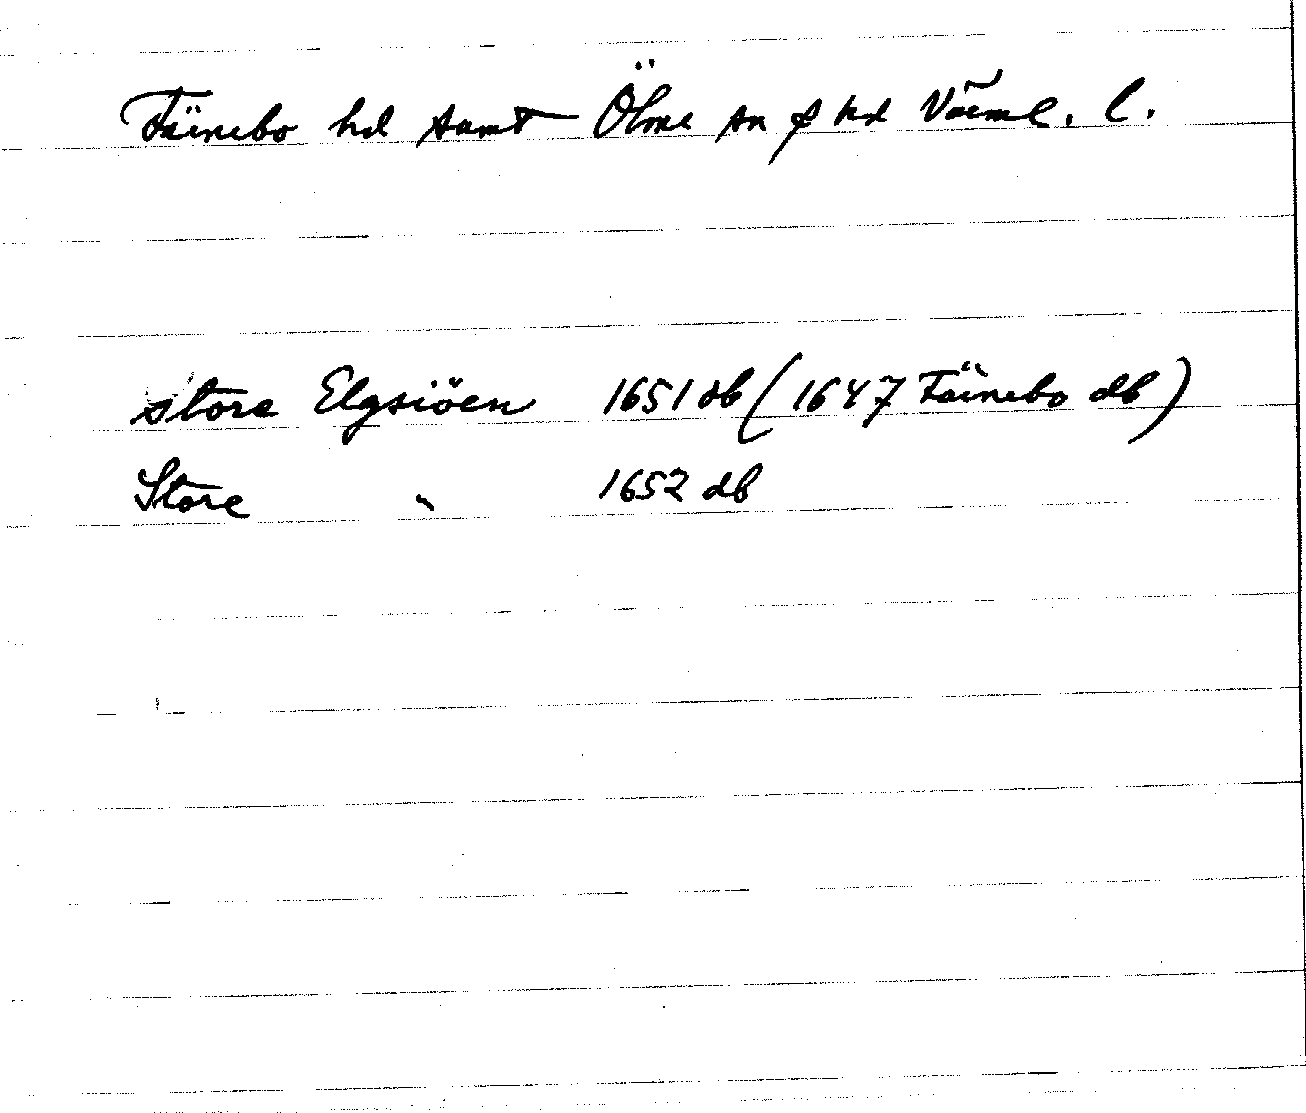 Färnebo hd samt Ölme sn o hd Värml. l.
store Elgsiöen 1651 db (1647 Färnebo db)
Store " 1652 db